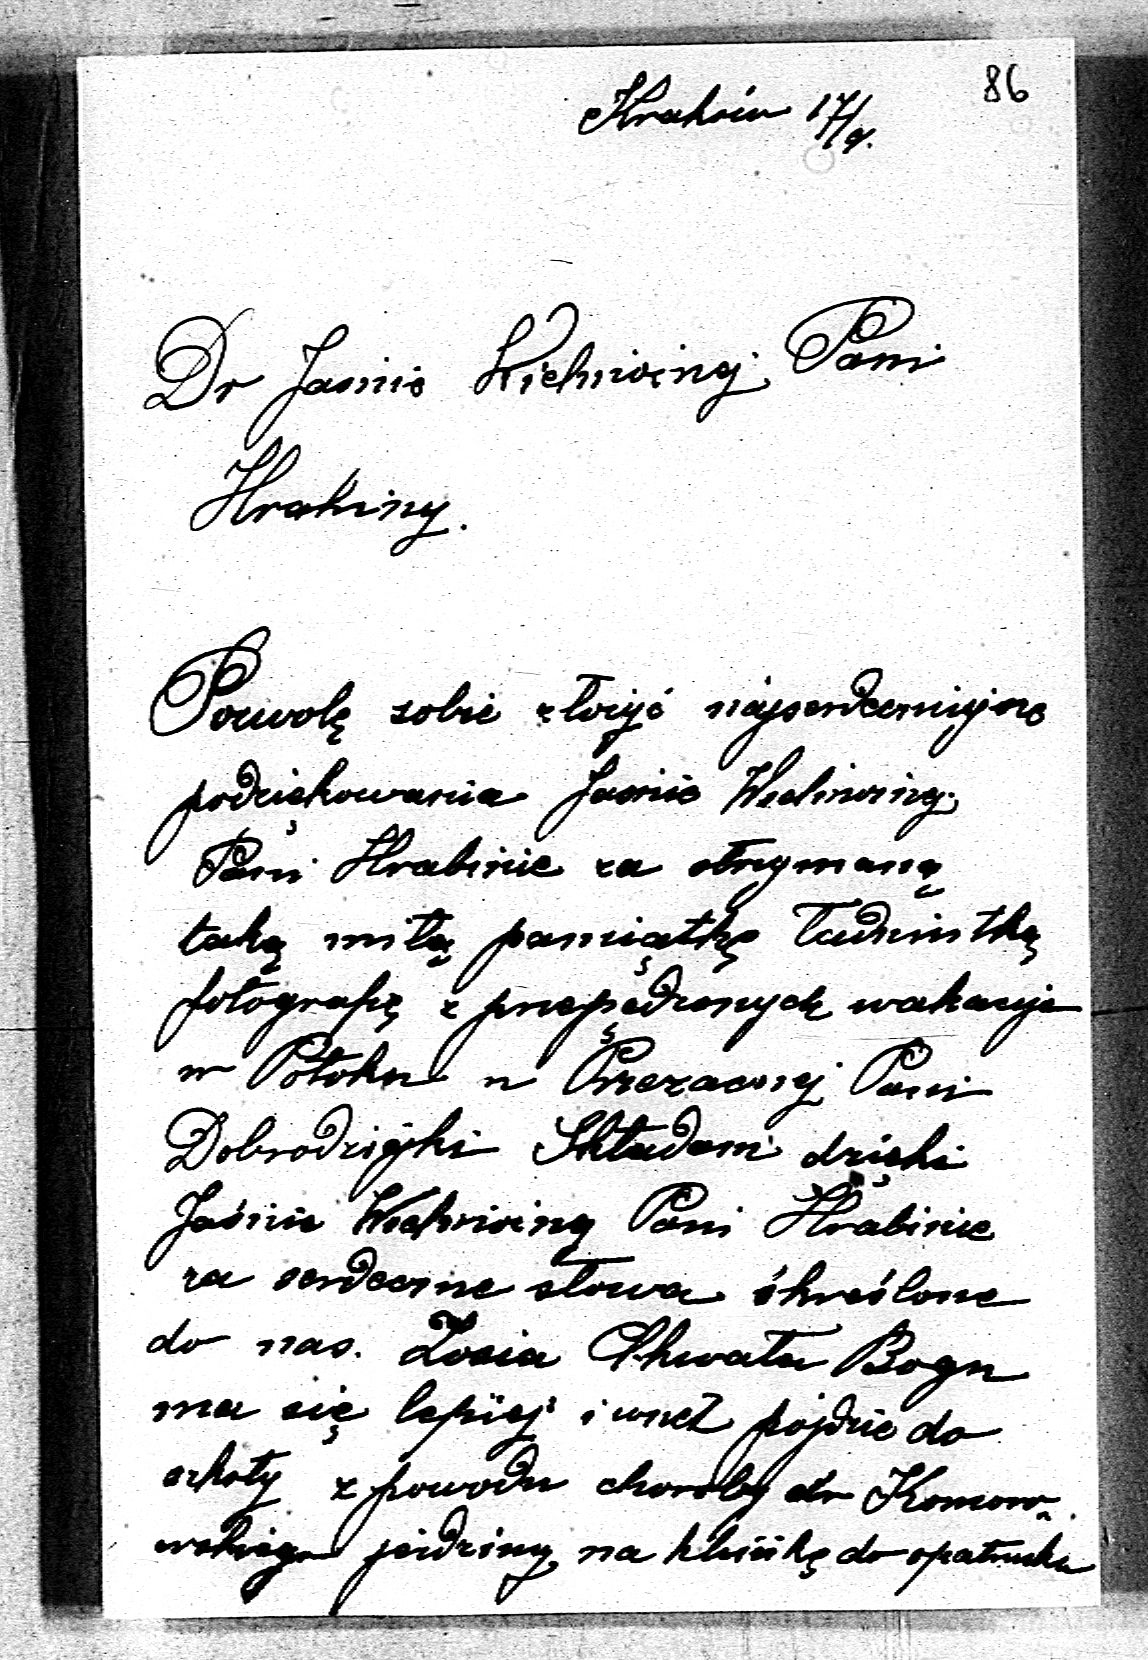 86
Kraków 17/9.
Dr Jaśnie Wielmożnej Pani
Hrabiny.
Pozwolę sobie złożyć najserdeczniejsze
podziękowania Jaśnie Wielmożnej
Pani Hrabinie za otrzymaną
taką miłą pamiątkę
fotografię z przepędzonych wakacyje
w Potoku u Przezacnej Pani
Dobrodziejki Składam dzięki
Jaśnie Wielmożnej Pani Hrabinie
za serdeczne słowa skreślone
do nas. Zosia Chwała Bogu
ma się lepiej i wnet pójdzie do
szkoły z powodu choroby dr Komoro-
wskiego jeździmy na klinikę do opatrunku